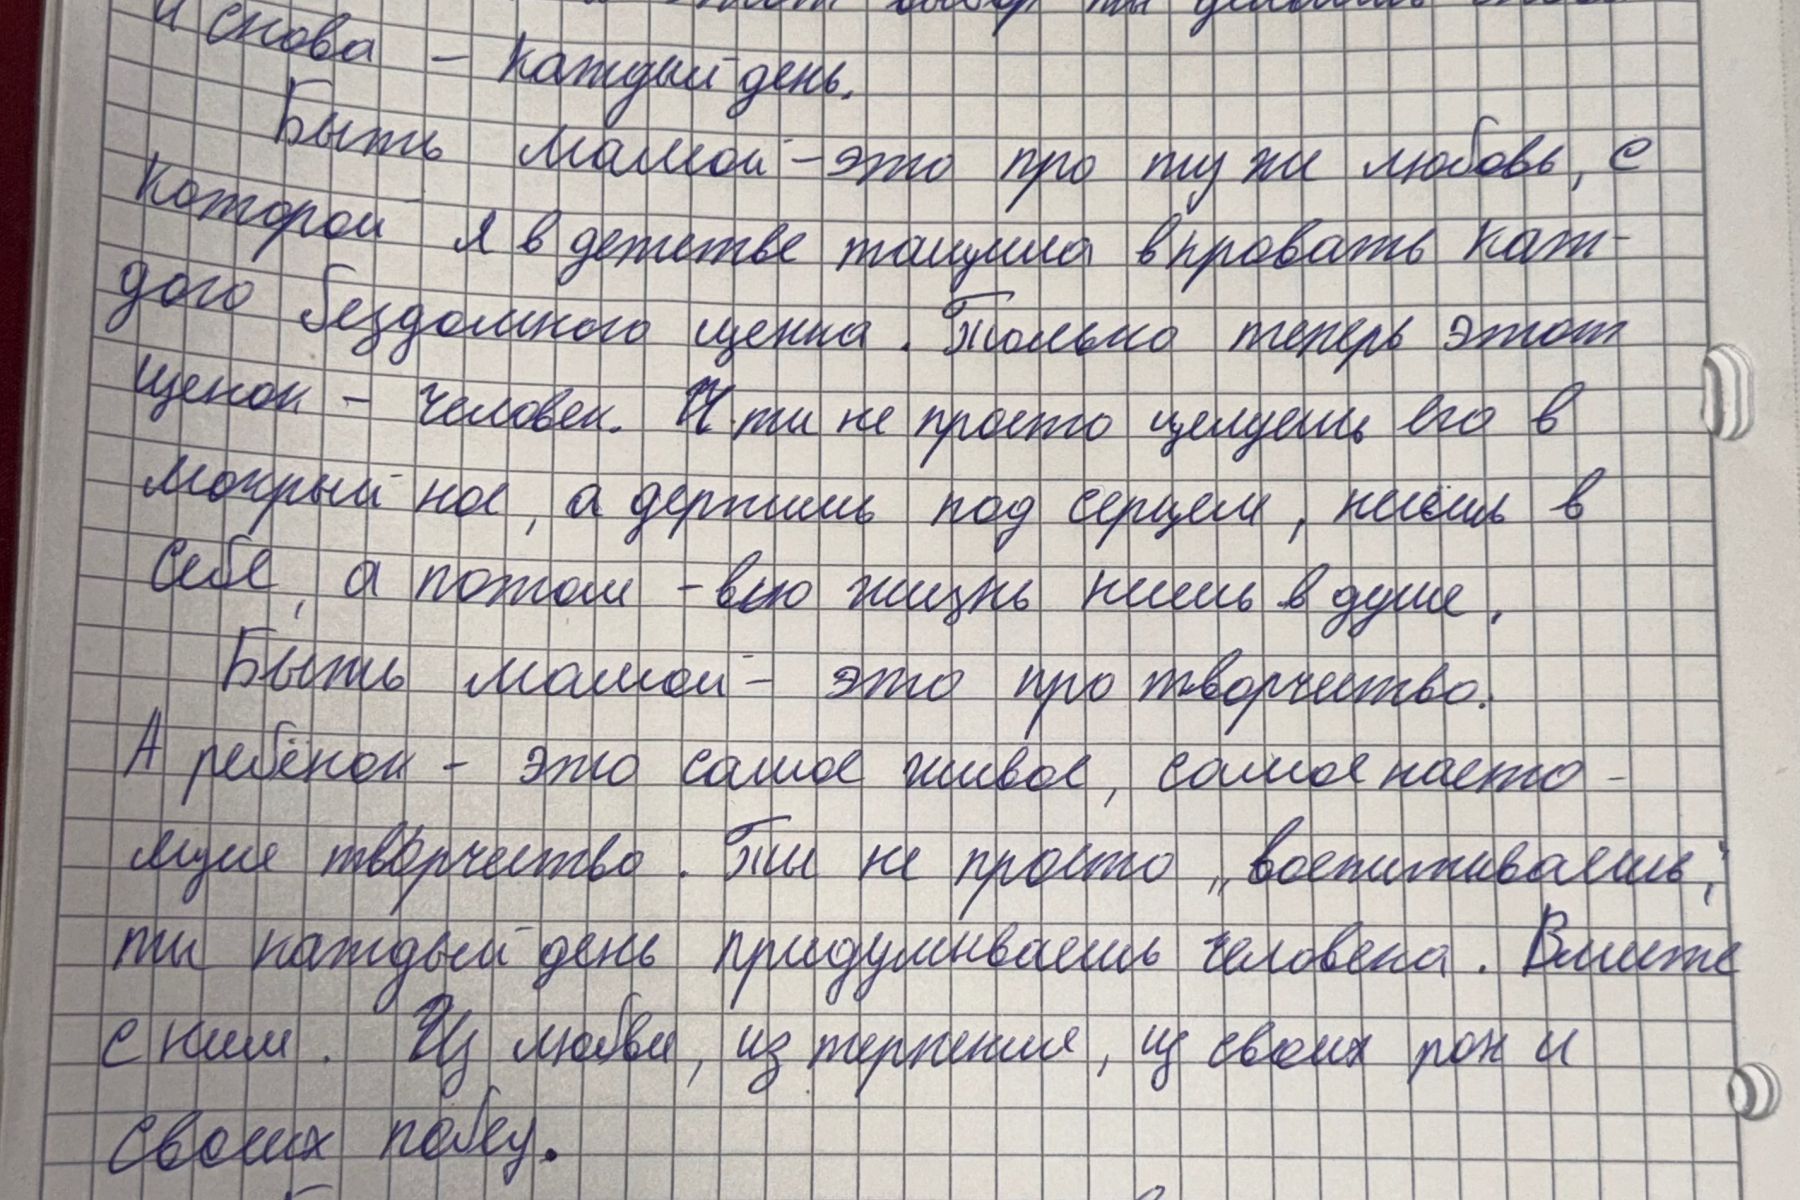 и снова – каждый день.
Быть мамой – это про ту же любовь, с
которой я в детстве тащила в кровать каж-
дого бездомного щенка. Только теперь этот
щенок – человек. И ты не просто целуешь его в
мокрый нос, а держишь под сердцем, носишь в
себе, а потом – всю жизнь несёшь в душе.
Быть мамой – это про творчество.
А ребёнок – это самое живое, самое насто-
ящее творчество. Ты не просто „воспитываешь",
ты каждый день придумываешь человека. Вместе
с ним. Из любви, из терпения, из своих ран и
своих побед.